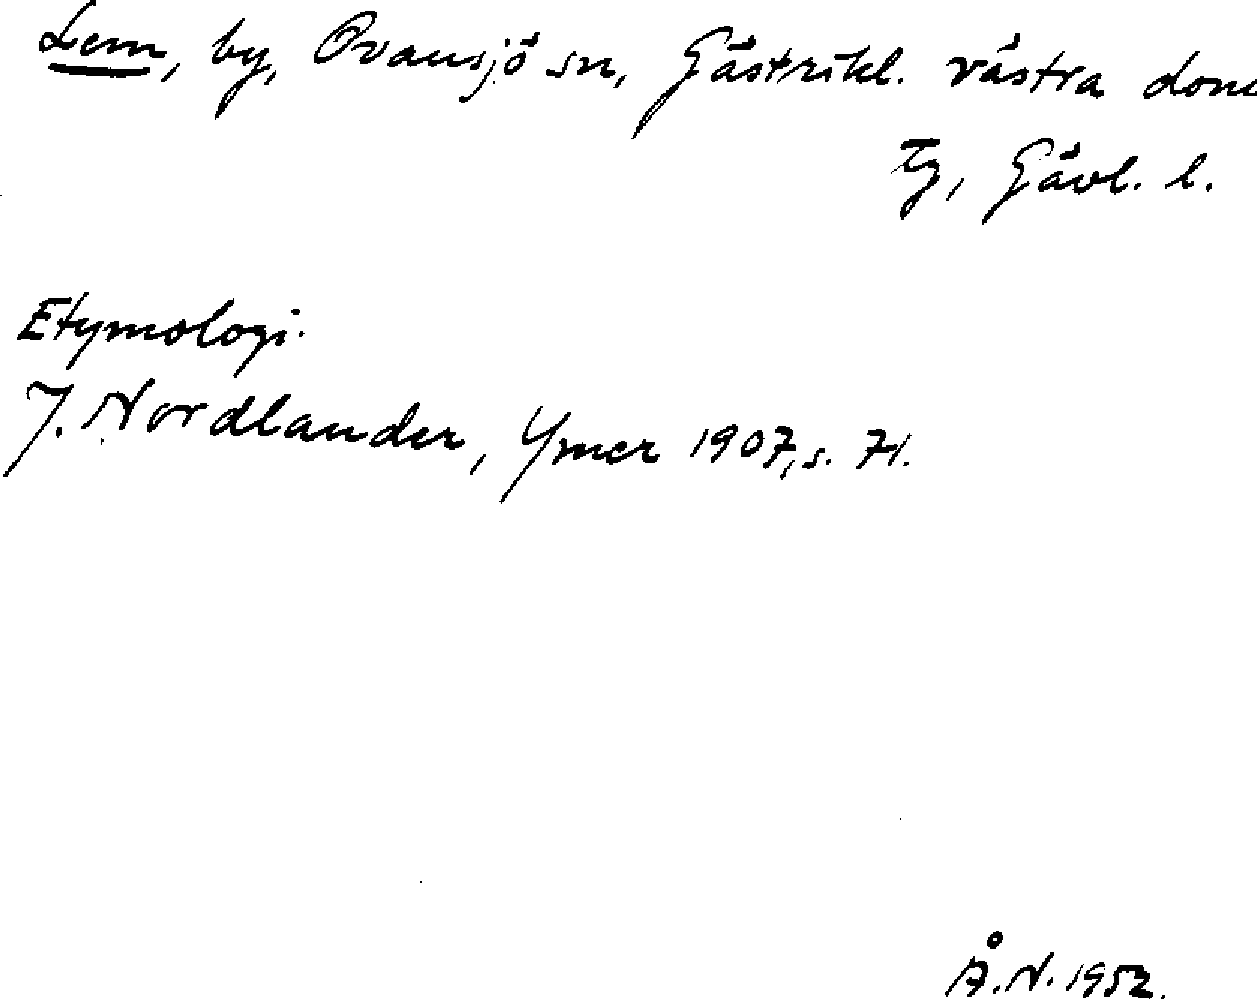 Lem, by, Ovansjö sn, Gästrikl. västra dom
tg, Gävl. l.
Etymologi.
J. Nordlander, Ymer 1907, s. 71.
Å.N. 1952.